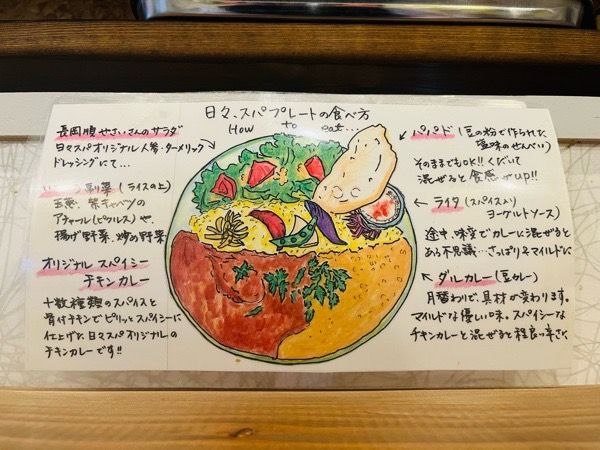 日々、スパプレートの食べ方
How to eat...
長岡順やさいさんのサラダ
日々スパオリジナル人参・ターメリック
ドレッシングにて…
副菜(ライスの上)
玉葱、紫キャベツの
アチャール(ピクルス)や、
揚げ野菜、炒め野菜
オリジナル スパイシー
チキンカレー
十数種類のスパイスと
骨付チキンでピリッとスパイシーに
仕上げた日々スパオリジナルの
チキンカレーです!!
パパド(豆の粉で作られた
塩味のせんべい)
そのままでもOK!!くだいて
混ぜると食感がup!!
ライタ(スパイス入り
ヨーグルトソース)
途中、味変でカレーに混ぜると
あら不思議…さっぱりそマイルドに
ダルカレー(豆カレー)
月替わりで具材が変わります。
マイルドな優しい味。スパイシーな
チキンカレーと混ぜると程良い辛さに